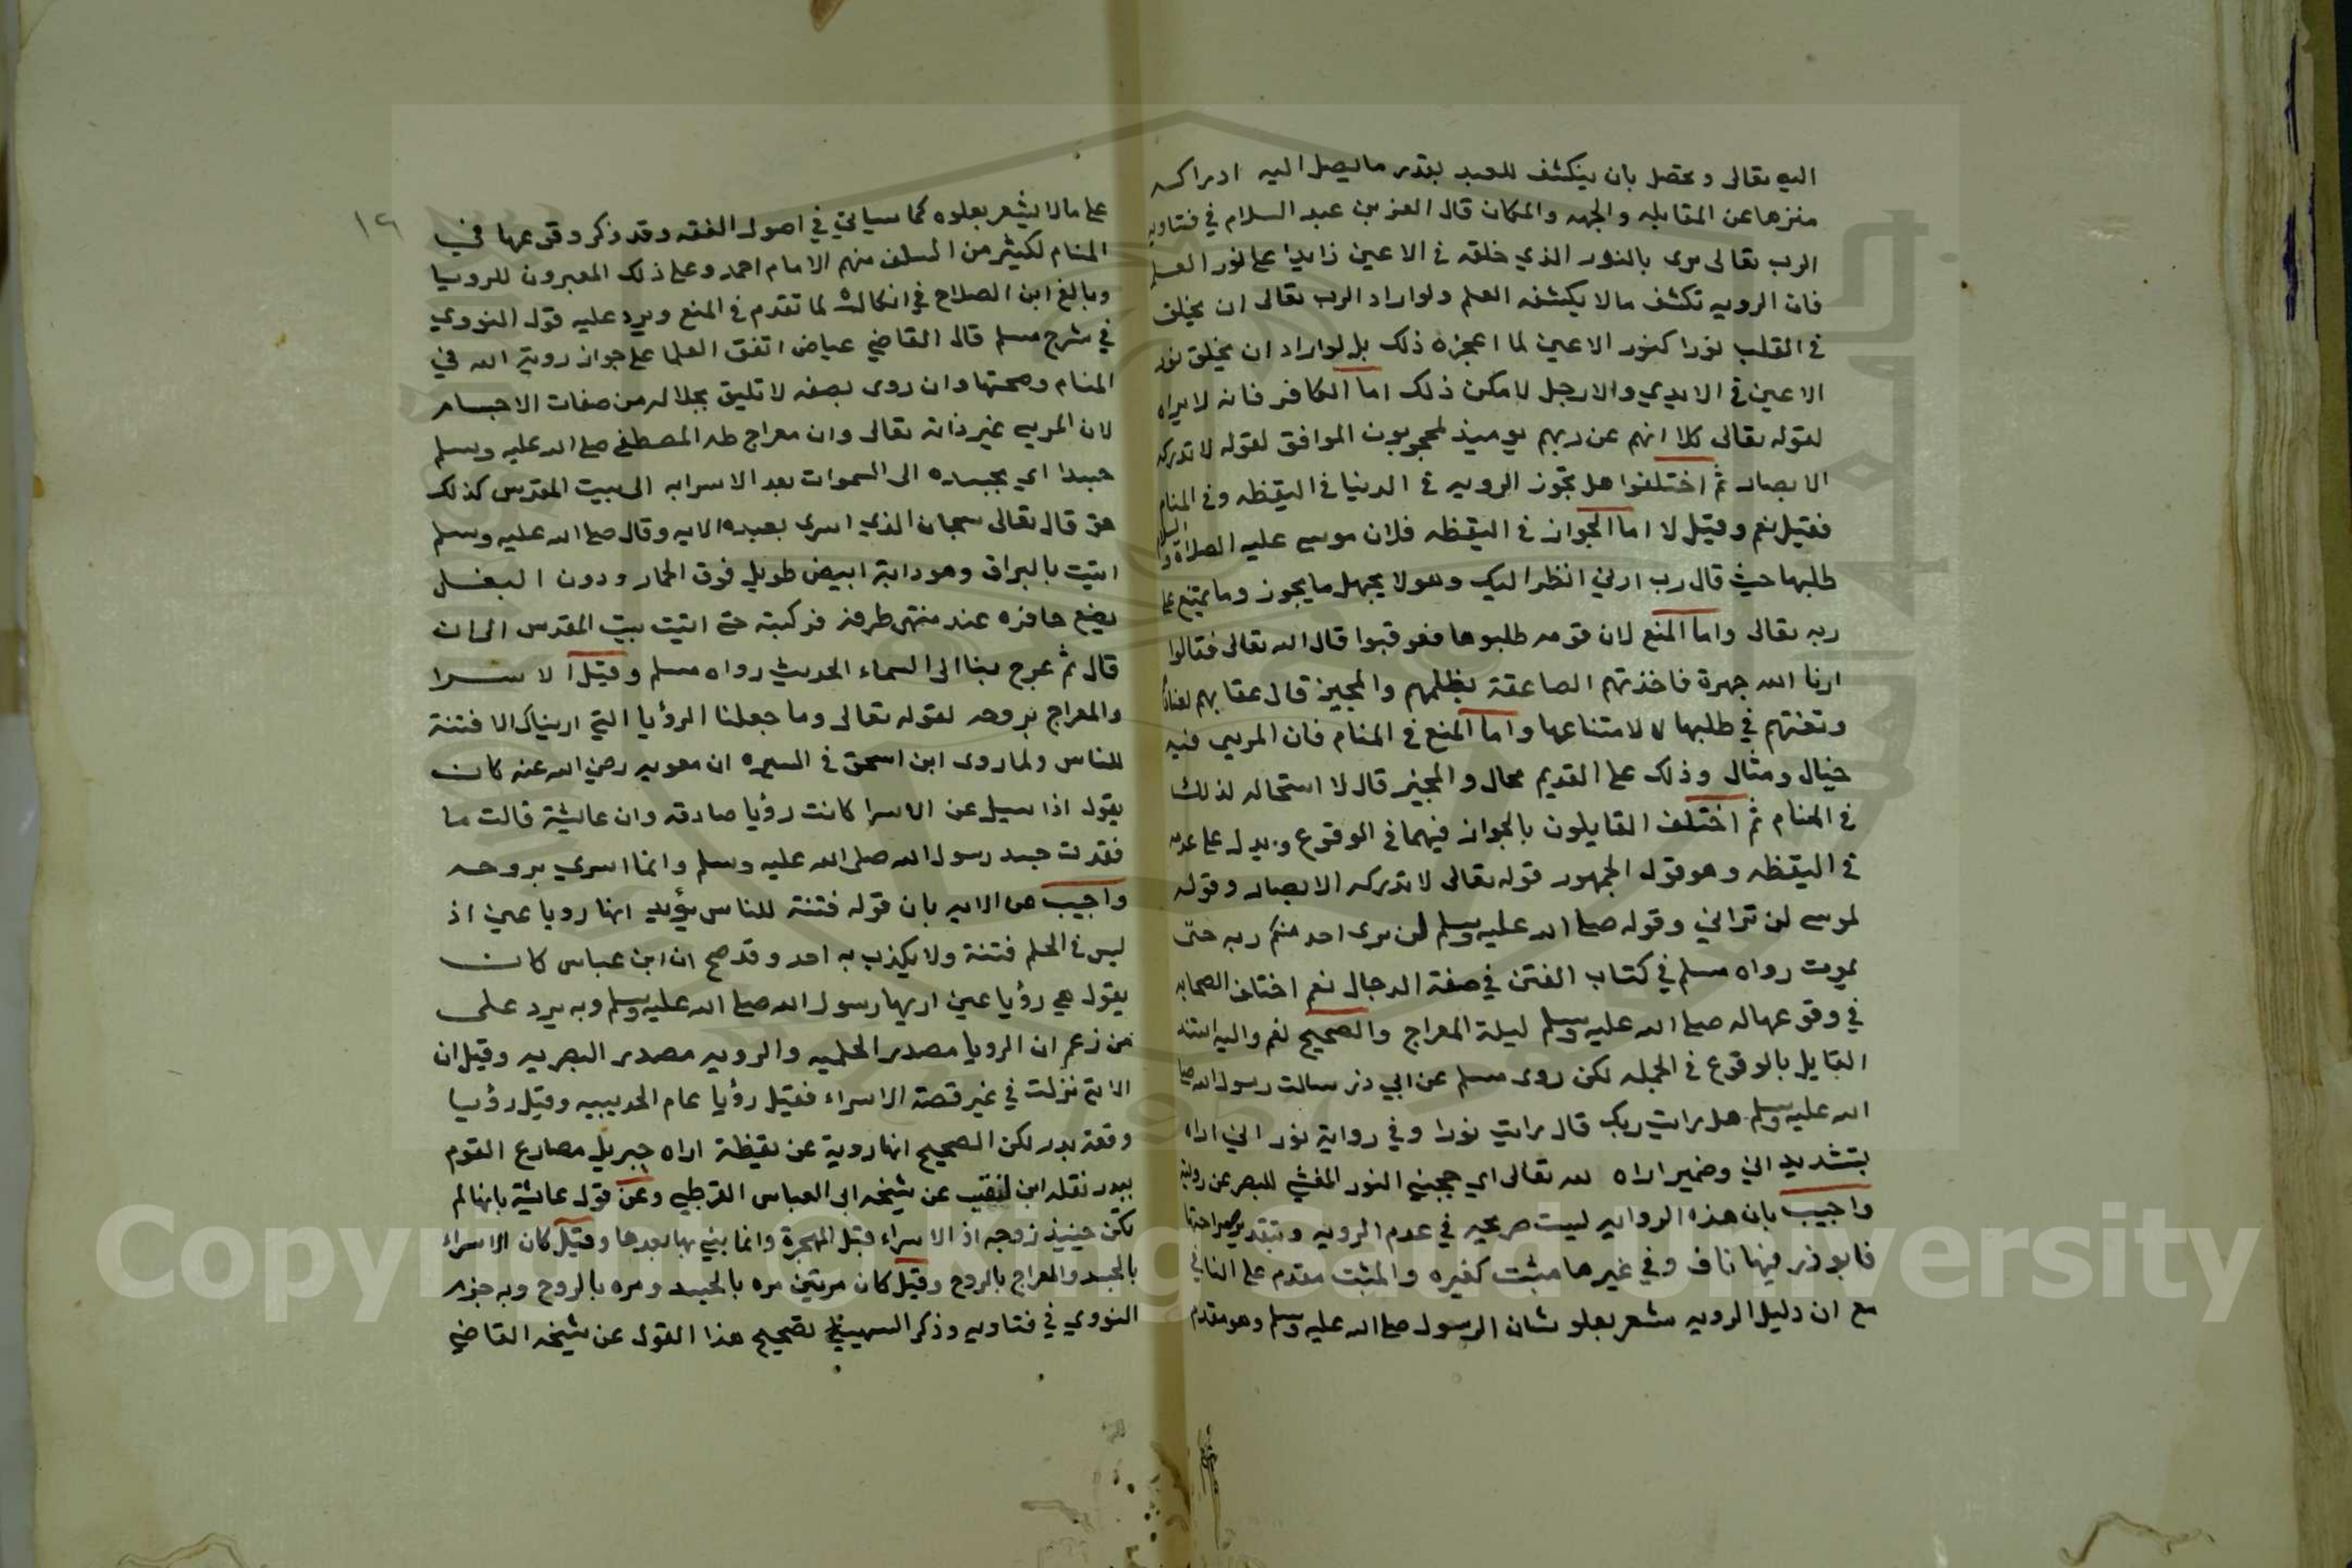 اليه تعالى ويحصل بان ينكشف للعبد بقدر ما يصل اليه ادراكه
منزها عن المقابله والجهه والمكان قال العز بن عبد السلام في فتاويه
الرب تعالى يرى بالنور الذي خلقه في الاعين زايدا على نور العلم
فان الرويه تكشف مالا يكشفه العلم ولو اراد الرب تعالى ان يخلق
في القلب نورا كنور الاعين لما اعجزه ذلك بل لو اراد ان يخلق نور
الاعين في الايدي والارجل لامكن ذلك اما الكافر فانه لا يراه
لقوله تعالى كلا انهم عن ربهم يوميذ لمحجوبون الموافق لقوله لا تدركه
الابصار ثم اختلفوا هل تجوز الرويه في الدنيا في اليقظه وفي المنام
فقيل نعم وقيل لا اما الجواز في اليقظه فلان موسى عليه الصلاة والسلام
طلبها حيث قال رب ارني انظر اليك وهو لا يجهل ما يجوز وما يمتنع على
ربه تعالى واما المنع لان قومه طلبوها فعوقبوا قال الله تعالى فقالوا
ارنا الله جهرة فاخذتهم الصاعقة بظلمهم والمجيز قال عقابهم لعنادهم
وتعنتهم في طلبها لا لامتناعها واما المنع في المنام فان المريي فيه
خيال ومثال وذلك على القديم محال والمجيز قال لا استحاله لذلك
في المنام ثم اختلف القايلون بالجواز فيهما في الوقوع ويدل على عدمه
في اليقظه وهو قول الجمهور قوله تعالى لا تدركه الابصار وقوله
لموسى لن تراني وقوله صلى الله عليه وسلم لن يرى احد منكم ربه حتى
يموت رواه مسلم في كتاب الفتن في صفة الدجال نعم اختلف الصحابه
في وقوعها له صلى الله عليه وسلم ليلة المعراج والصحيح نعم واليه استند
القايل بالوقوع في الجمله لكن روى مسلم عن ابي ذر سالت رسول الله صلى
الله عليه وسلم هل رايت ربك قال رايت نورا وفي رواية نور اني اراه
بتشديد اني وضمير اراه لله تعالى اي حجبني النور المغشي للبصر عن رويته
واجيب بان هذه الروايه ليست صريحه في عدم الرويه وبتقدير صراحتها
فابوذر فيها ناف وفي غيرها مثبت كغيره والمثبت مقدم على النافي
مع ان دليل الرويه مشعر بعلو شان الرسول صلى الله عليه وسلم وهو مقدم
١٢
على مالا يشعر بعلوه كما سياتي في اصول الفقه وقد ذكر وقوعها في
المنام لكثير من السلف منهم الامام احمد وعلى ذلك المعبرون للرويا
وبالغ ابن الصلاح في انكاره لما تقدم في المنع ويرد عليه قول النووي
في شرح مسلم قال القاضي عياض اتفق العلما على جواز روية الله في
المنام وصحتها وان روى بصفه لا تليق بجلاله من صفات الاجسام
لان المريي غير ذاته تعالى وان معراج طه المصطفى صلى الله عليه وسلم
جسدا اي بجسده الى السموات بعد الاسرا به الى بيت المقدس كذلك
حق قال تعالى سبحان الذي اسرى بعبده الايه وقال صلى الله عليه وسلم
اتيت بالبراق وهو دابة ابيض طويل فوق الحمار ودون البغل
يضع حافره عند منتهى طرفه فركبته حتى اتيت بيت المقدس الى ان
قال ثم عرج بنا الى السماء الحديث رواه مسلم وقيل الاسرا
والمعراج بروحه لقوله تعالى وما جعلنا الرؤيا التي اريناك الا فتنة
للناس ولما روى ابن اسحق في السيره ان معويه رضي الله عنه كان
يقول اذا سيل عن الاسرا كانت رؤيا صادقه وان عايشة قالت ما
فقدت جسد رسول الله صلى الله عليه وسلم وانما اسري بروحه
واجيب عن الايه بان قوله فتنة للناس يؤيد انها رويا عين اذ
ليس في الحلم فتنة ولا يكذب به احد وقد صح ان ابن عباس كان
يقول هي رؤيا عين اريها رسول الله صلى الله عليه وسلم وبه يرد على
من زعم ان الرويا مصدر الحلميه والرويه مصدر البصريه وقيل ان
الاية نزلت في غير قصة الاسراء فقيل رؤيا عام الحديبيه وقيل رؤيا
وقعة بدر لكن الصحيح انها روية عن يقظة اراه جبريل مصارع القوم
ببدر نقله ابن النقيب عن شيخه ابى العباس القرطبي وعن قول عايشة بانها لم
تكن حينيذ زوجه اذ الاسراء قبل الهجرة وانما بني بها بعدها وقيل كان الاسراء
بالجسد والمعراج بالروح وقيل كان مرتين مره بالجسد ومره بالروح وبه جزم
النووي في فتاويه وذكر السهيلي تصحيح هذا القول عن شيخه القاضي
Copyright © King Saud University